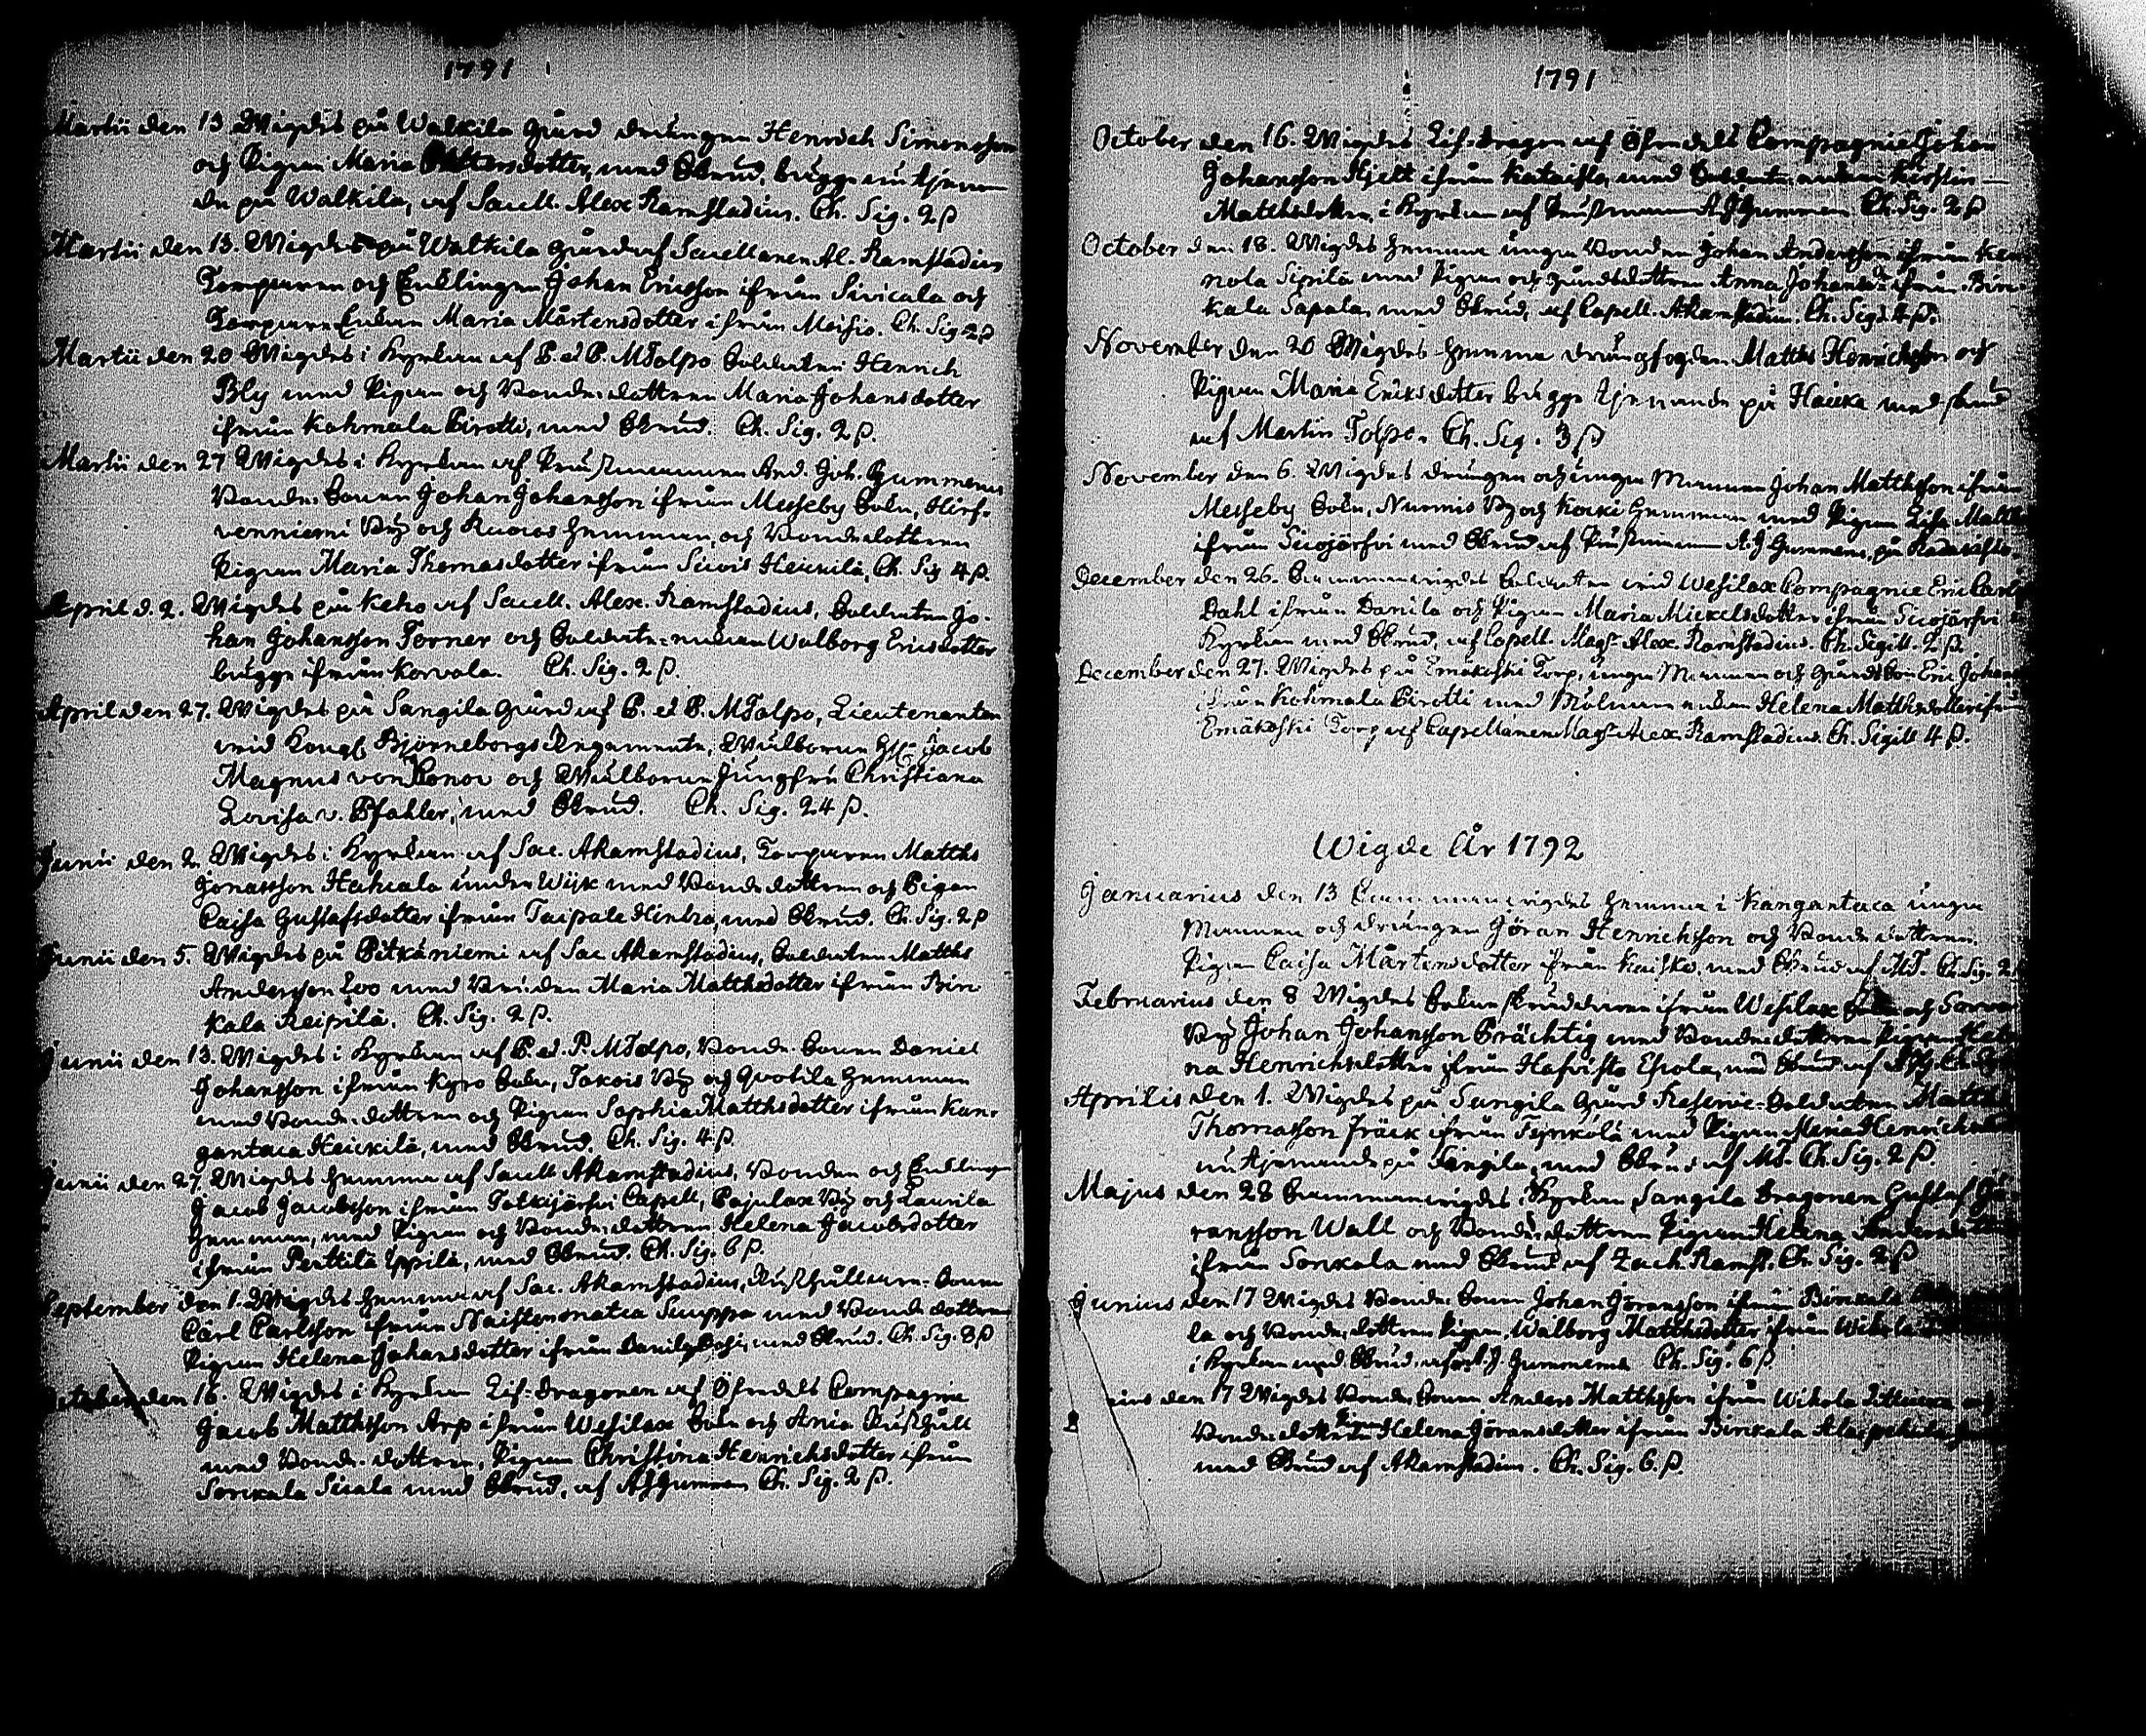 1791
Martii den 13 Wigdes på Walkila Gård drängen Henrich Simonsson
och Pigan Maria dotter, med Brud, bägge nu tjenan
de på Walkila, af Sacell. Alex Ramstadius. Ch. Sig. 2 β
Martii den 13. Wigdes på Walkila Gård af Sacellanen Al. Ramstadius
Torparen och Enklingen Johan Ericsson ifrån Sivicala och
Torpare Enkan Maria Mårtensdotter ifrån Moisio. Ch. Sig 2 β
Martii den 20 Wigdes i Kyrkan af P. et P. MTolpo Soldaten Henrich
Bly med Pigan och Bonde dottren Maria Johansdotter
ifrån Kohmala Pirotti, med Brud. Ch. Sig. 2 β.
Martii den 27 Wigdes i Kyrkan af And. Joh. Gummerus
Bonde Sonen Johan Johansson ifrån Messeby Sokn, Hirf-
venniemi By och Ruoros Hemman, och Bondedottren
Pigan Maria Thomasdotter ifrån Siurois Heickilä, Ch. Sig 4 β.
April d. 2. Wigdes på Keho af Sacell. Alex. Ramstadius, Soldaten Jo-
han Johansson Torner och Soldate-enkan Walborg Ericsdotter
bägge ifrån Korvola. Ch. Sig. 2 β.
April den 27. Wigdes på Sangila Gård af P. et P. MTolpo, Lieutenanten
wid Kongl. Björneborgs Regemente, Wälborne H Jacob
Magnus von Konow och Wälborne Jungfru Christiana
Lovisa v. Pfahler, med Brud. Ch. Sig. 24 β.
Junii den 2. Wigdes i Kyrkan af Sac. ARamstadius, Torparen Matths
Jonasson Hakiala under Wijk med Bonde dottren och Pigan
Caisa Gustafsdotter ifrån Taipale Hintza, med Brud. Ch. Sig. 2 β
Junii den 5. Wigdes på Pitkäniemi af Sac ARamstadius, Soldaten Matths
Andersson Lvo med Maria Matthsdotter ifrån Bir-
kala Reipilä. Ch. Sig. 2 β.
Junii den 13. Wigdes i Kyrkan af P. et P. MTolpo, Bonde Sonen Daniel
Johansson ifrån Kyro Sokn, Jokois By och Qvotila Hemman
med Bonde dottren och Pigan Sophia Matthsdotter ifrån Kan-
gantaca Heickilä, med Brud. Ch. Sig. 4 β.
Junii den 27. Wigdes hemma af Sacell ARamstadius, Bonden och Enklingen
Jacob Jacobsson ifrån Tolkisjärfvi Capell, Pajulax By och Laurila
Hemman, med Pigan och Bonde dottren Helena Jacobsdotter
ifrån Perttilä Yppilä, med Brud. Ch. Sig. 6 β.
September den 1. Wigdes hemma af Sac. ARamstadius, Rusthållare-Sonen
Carl Carlsson ifrån Naistenmatca Suppa med Bonde dottren
Pigan Helena Johansdotter ifrån Danila, med Brud. Ch. Sig. 8 β
October den 16. Wigdes i Kyrkan Lif-dragonen af Öfverdels Compagnie
Jacob Matthsson Arp ifrån Wesilax Sokn och Ania Rusthåll
med Bonde dottren, Pigan Christina Henrichsdotter ifrån
Sorkala Sicala med Brud, af AJGummerus Ch. Sig. 2 β.
1791
October den 16. Wigdes Lif-dragon af Öfverdels Compagnie Johan
Johansson Hjelt ifrån Kataisto, med Soldate enkan Kirstin
Matthsdotter i Kyrkan af AJGummerus. Ch. Sig. 2 β
October den 18. Wigdes hemma unga Bonden Johan Andersson ifrån
nola Sipilä med Pigan och Gårdsdottren Anna Johansd: ifrån Bir-
kala Sapala, med Brud, af Capell. ARamstadius. Ch. Sig. 4 β.
November den 20 Wigdes hemma drängfogden Matths Henrichsson och
Pigan Maria Ericsdotter bägge tjenande på Haicka med Brud
af Martin Tolpo. Ch. Sig. 3 β
November den 6. Wigdes drängen och unga Mannen Johan Matthsson ifrån
Messeby Sokn, Nurmis By och Koski Hemman med Pigan Lisa Matths
ifrån Suojärfvi med Brud af A.J Gummerus, på
December den 26. Sammanwigdes Soldaten wid Wesilax Compagnie Eric Carls
Dahl ifrån Danila och Pigan Maria Mickelsdotter ifrån Suojärfvi
Kyrkan med Brud, af Capell. Magr Alex. Ramstadius. Ch. Sigill. 2 β.
December den 27. Wigdes på Emäkoski Torp, unga Mannen och Gårds Son Eric Johans
ifrån Kohmala Pirotti med Mölnare enkan Helena Matthsdotter ifrån
Emäkoski Torp af Capellanen Magr Alex. Ramstadius. Ch. Sigill 4 β.
Wigde År 1792
Januarius den 13 Sammanwigdes hemma i Kangantaca unga
Mannen och drängen Göran Henrichsson och Bonde dottren
Pigan Caisa Mårtensdotter ifrån Kaisko, med Brud af MT. Ch. Sig. 2
Februarius den 8 Wigdes Sokne skräddaren ifrån Wesilax och
By Johan Johansson Prächtig med Bonde dottren Pigan
na Henrichsdotter ifrån Hafvisto Eskola, med Brud af
Aprilis den 1. Wigdes på Sangila Gård Reserve-Soldaten Matths
Thomasson Fräck ifrån Tyrkölä med Pigan Maria Henrichs
nu tjenande på Sangila, med Brud af MT. Ch. Sig. 2 β.
Majus den 28 Sammanwigdes i Kyrkan, Sangila Dragonen Gustaf Gö-
ransson Wall och Bonde dottren Pigan Helena
ifrån Sorkala med Brud af Zach. Ramst. Ch. Sig. 2 β
Junius den 17 Wigdes Bonde Sonen Johan Göransson ifrån Birckala
la och Bonde dottren Pigan Walborg Matthsdotter ifrån Wihola
i Kyrkan med Brud, af A.J Gummerus Ch. Sig. 6 β
nius den 17 Wigdes Bonde Sonen Anders Matthsson ifrån Wihola
Bonde dottren Pigan Helena Göransdotter ifrån Birckala
med Brud af ARamstadius. Ch. Sig. 6 β.